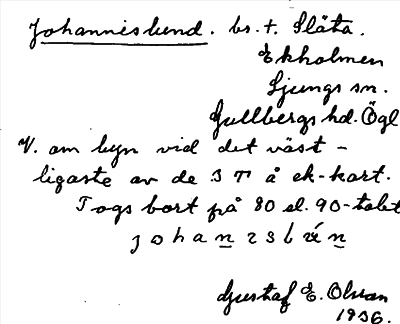 Johanneslund. bs. t. Slåta.
Ekholmen
Ljungs sn.
Gullbergs hd. Ögl
V. om byn vid det väst-
ligaste av de 3 T å ek-kart.
Togs bort på 80 el. 90-talet
Gustaf E. Olsson
1936.